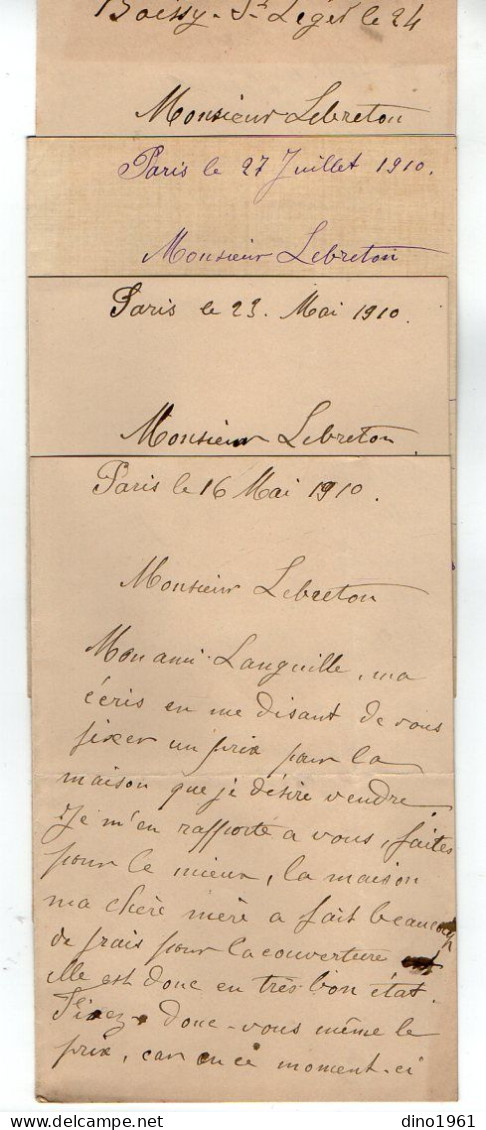 Boissy-St Léger le 24
Monsieur Lebreton
Paris le 27 Juillet 1910.
Monsieur Lebreton
Paris le 23. Mai 1910.
Monsieur Lebreton
Paris le 16 Mai 1910.
Monsieur Lebreton
Mon ami Languille, ma
écris en me disant de vous
fixer un prix pour la
maison que je désire vendre.
Je m'en rapporte a vous, faites
pour le mieux, la maison
ma chère mère a fait beaucoup
de frais pour la couverture
elle est donc en très-bon état.
Fixez donc-vous même le
prix, car en ce moment-ci
dino1961